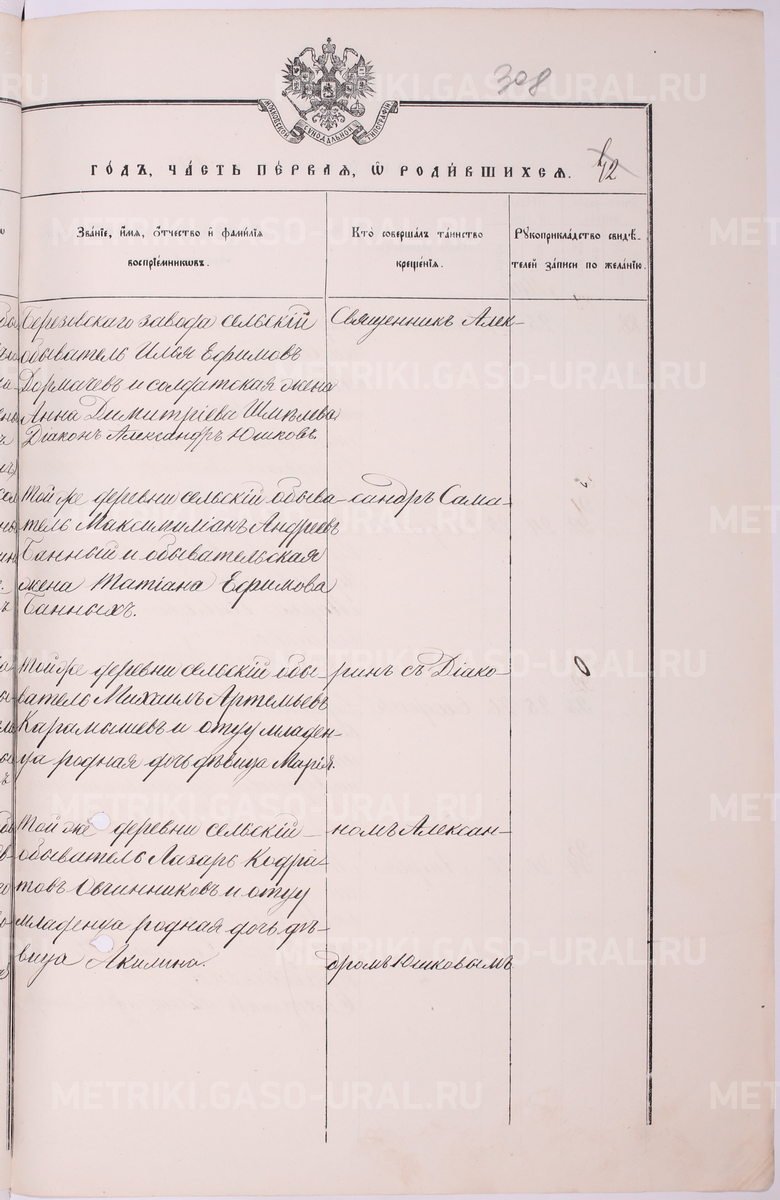 308
МОСКОВСКОЙ СѴНОДАЛЬНОЙ ТИПОГРАФІИ
ГО́ДЪ, ЧА́СТЬ ПЕ́РВАЯ, Ѡ РОДИ́ВШИХСЯ.
72
Зва́ніе, и́мя, о́тчество и фами́лія воспріе́мниковъ.
Кто̀ соверша́лъ та́инство креще́нія.
Рꙋкоприкла́дство свидѣ́телей за́писи по жела́нію.
Березовскаго завода сельскій
обыватель Илья Ефимовъ
Дормачевъ и солдатская жена
Анна Димитріева Шмелева
Діаконъ Александръ Юшковъ.
Священникъ Алек-
Той же деревни сельскій обыва-
тель Максимиліанъ Андреевъ
Банный и обывательская
жена Татіана Ефимова
Банныхъ.
сандръ Сама-
Той же деревни сельскій обы-
ватель Михаилъ Артемьевъ
Карамышевъ и отцу младен-
ца родная дочь дѣвица Марія.
ринъ съ Діако-
Той же деревни сельскій
обыватель Лазарь Кодра-
товъ Овчинниковъ и отцу
младенца родная дочь дѣ-
вица Акилина.
номъ Алексан-
дромъ Юшковымъ
METRIKI.GASO-URAL.RU